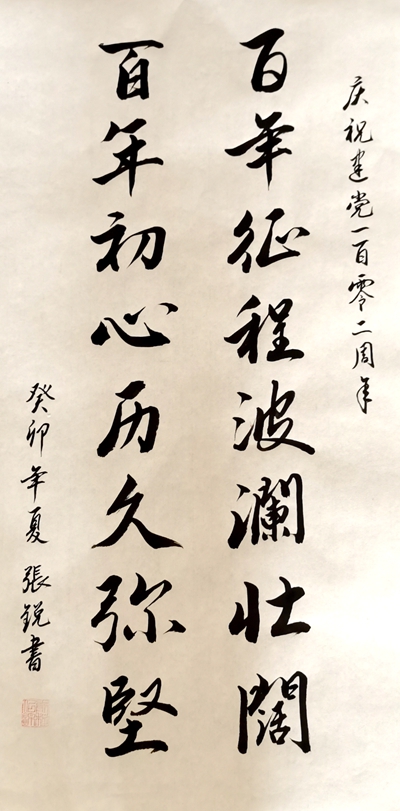 庆祝建党一百零二周年
百年征程波澜壮阔
百年初心历久弥堅
癸卯年夏 張銳書